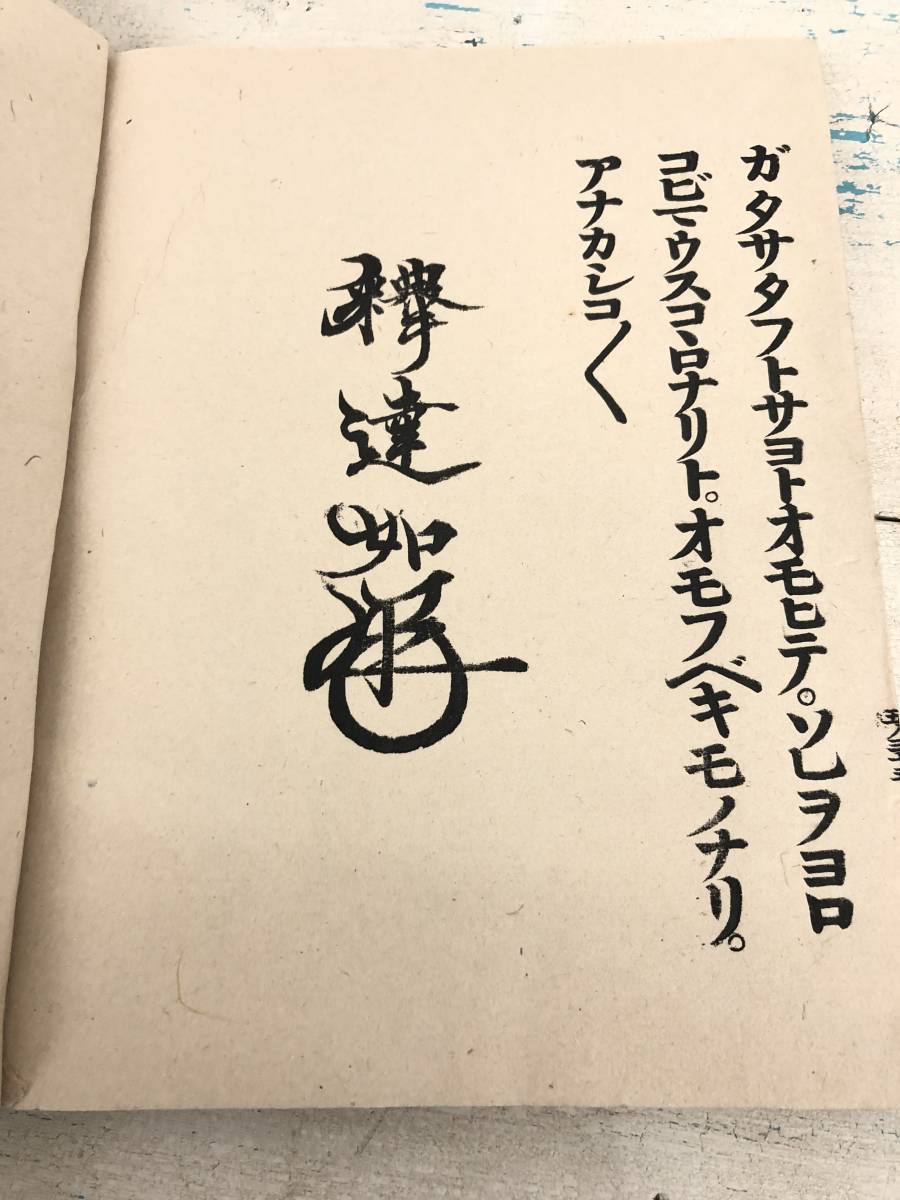 ガタサタフトサヨトオモヒテ。ソレヲヨロ
コビマウスコヽロナリト。オモフベキモノナリ。
アナカシコ〱
釋達如